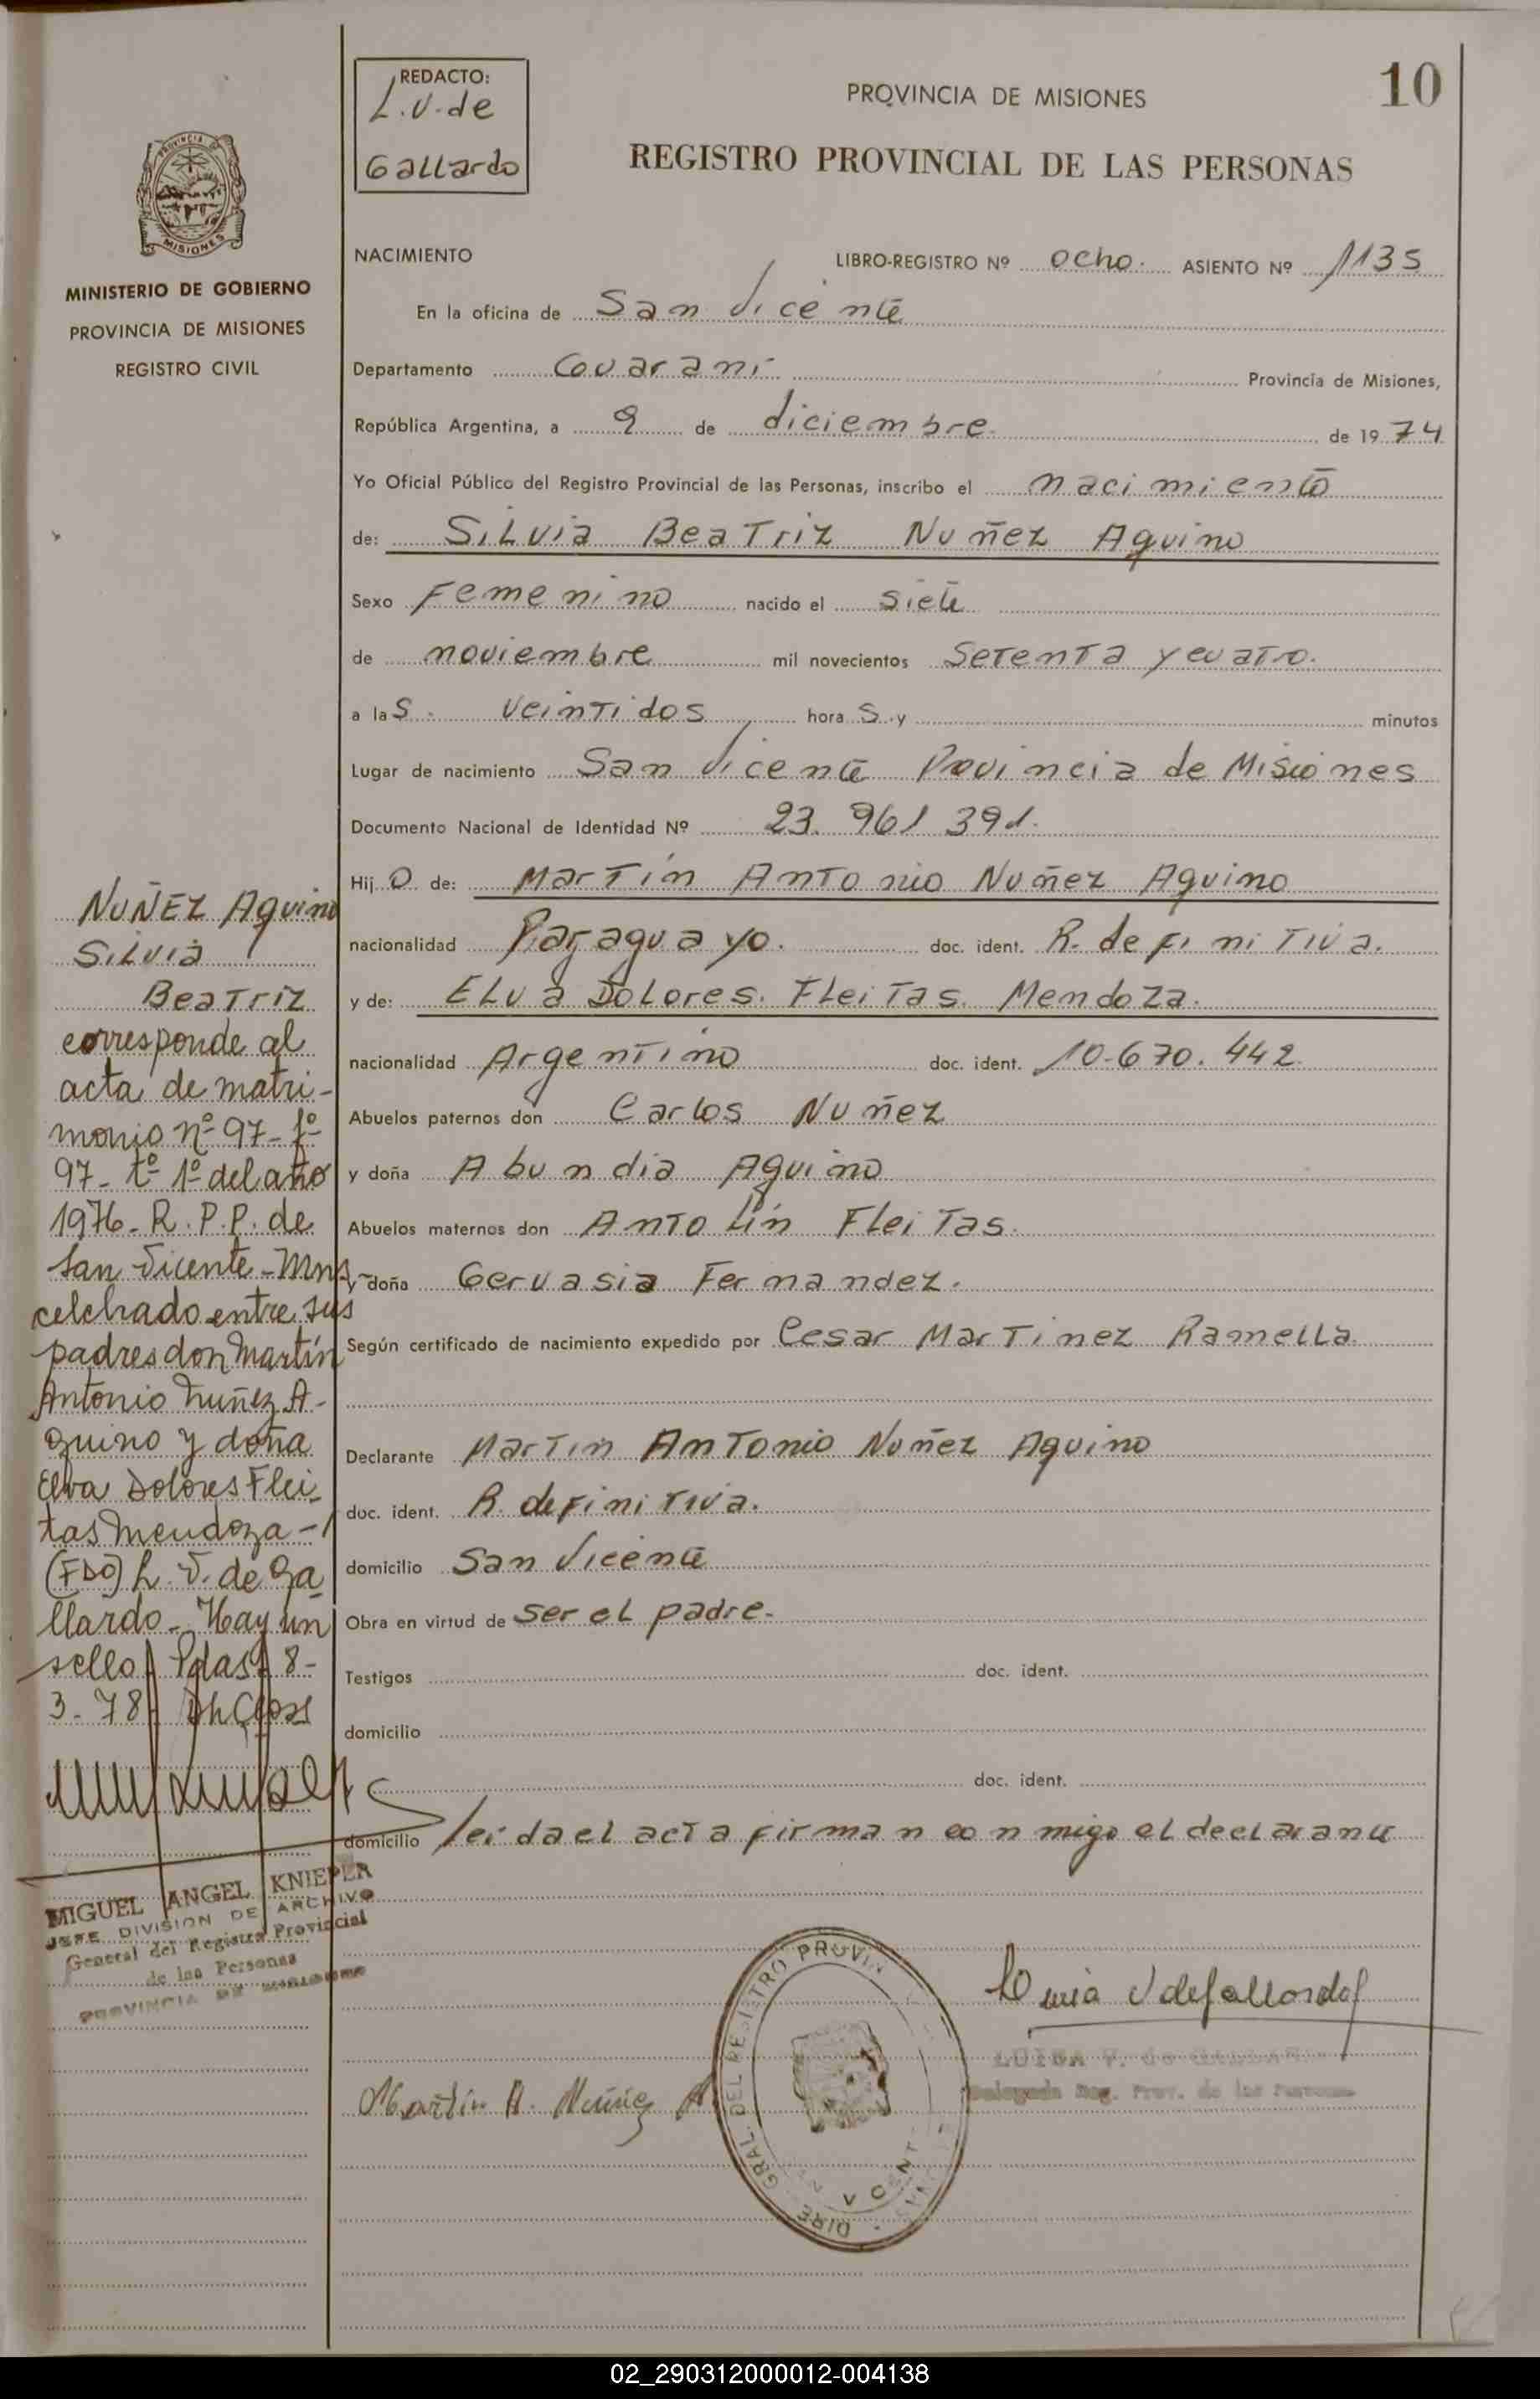 REDACTO:
L.V. de
Gallardo
PROVINCIA DE MISIONES
10
REGISTRO PROVINCIAL DE LAS PERSONAS
PROVINCIA
MISIONES
MINISTERIO DE GOBIERNO
PROVINCIA DE MISIONES
REGISTRO CIVIL
NACIMIENTO
LIBRO-REGISTRO Nº ocho. ASIENTO Nº 1135
En la oficina de San Vicente
Departamento Guarani Provincia de Misiones,
República Argentina, a 9 de diciembre de 1974
Yo Oficial Público del Registro Provincial de las Personas, inscribo el nacimiento
de: Silvia Beatriz Nuñez Aquino
Sexo Femenino nacido el siete
de noviembre mil novecientos setenta y cuatro.
a las veintidos horas y minutos
Lugar de nacimiento San Vicente Provincia de Misiones
Documento Nacional de Identidad Nº 23.961.391.
Hijo de: Martín Antonio Nuñez Aquino
nacionalidad Paraguayo. doc. ident. R. definitiva.
y de: Elva Dolores. Fleitas. Mendoza.
nacionalidad Argentino doc. ident. 10.670.442
Abuelos paternos don Carlos Nuñez
y doña Abundia Aquino
Abuelos maternos don Antolín Fleitas.
y doña Gervasia Fernandez.
Según certificado de nacimiento expedido por Cesar Martinez Ramella
Declarante Martin Antonio Nuñez Aquino
doc. ident. R. definitiva.
domicilio San Vicente
Obra en virtud de ser el padre.
Testigos doc. ident.
domicilio
doc. ident.
domicilio leida el acta firman conmigo el declarante
NUÑEZ Aquino
Silvia
Beatriz
corresponde al
acta de matri-
monio nº 97- fº
97- tº 1º del año
1976- R.P.P. de
San Vicente- Mns
celebrado entre sus
padres don Martín
Antonio Nuñez A-
quino y doña
Elva Dolores Flei-
tas Mendoza-
(FDO) L. V. de Ga
llardo- Hay un
sello Pdas 8-
3-78
MIGUEL ANGEL KNIEPER
JEFE DIVISION DE ARCHIVO
General del Registro Provincial
de las Personas
PROVINCIA DE MISIONES
Luisa V de Gallardo
LUISA V. de GALLARDO
Delegada Reg. Prov. de las Personas
Martín A. Nuñez A
02_290312000012-004138